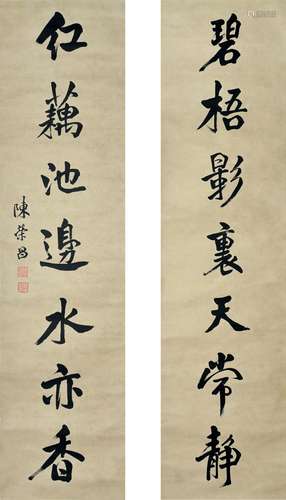 碧梧影裏天常靜
红藕池邊水亦香
陳荣昌